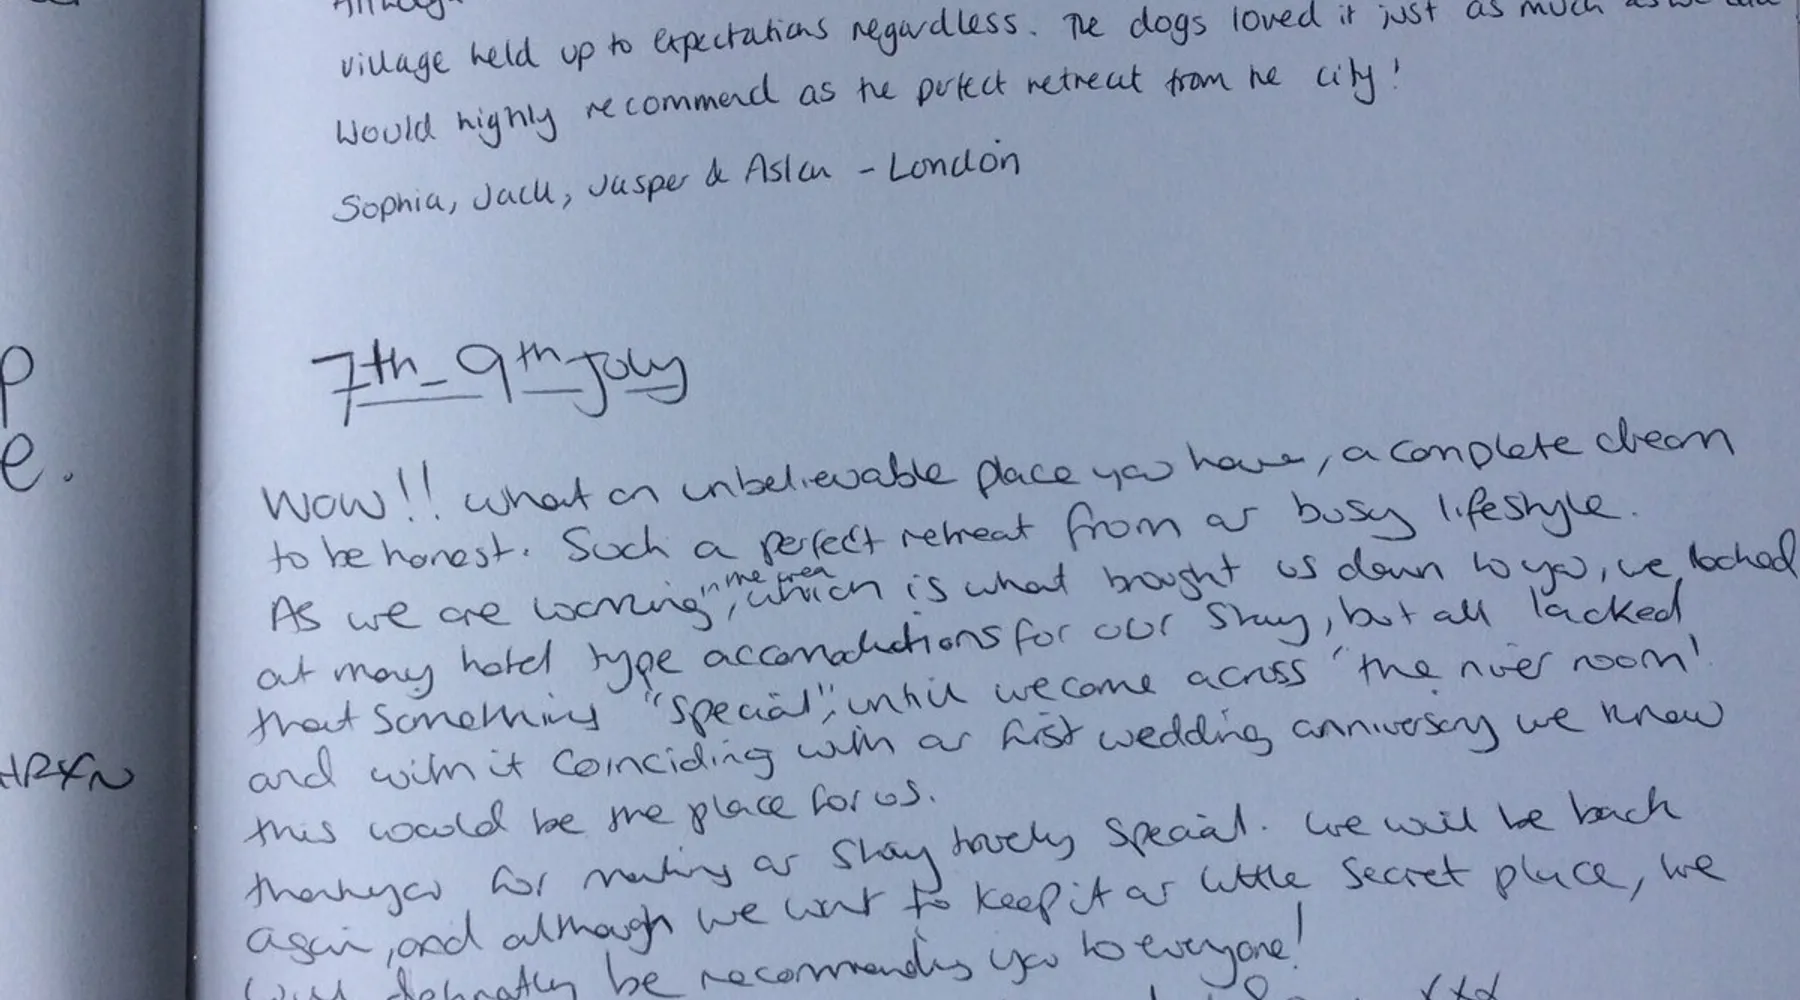 Although
village held up to expectations regardless. The dogs loved it just as much as we did
Would highly recommend as the perfect retreat from the city!
Sophia, Jack, Jasper & Aslan - London
p
e.
7th - 9th July
Wow!! what an unbelievable place you have, a complete dream
to be honest. Such a perfect retreat from our busy lifestyle.
As we are working in the area, which is what brought us down to you, we looked
at many hotel type accomodations for our stay, but all lacked
that something "special", until we came across 'the river room'
and with it coinciding with our first wedding anniversary we knew
this would be the place for us.
thankyou for making our stay truely special. We will be back
again, and although we want to keep it our little secret place, we
will definatly be recommending you to everyone!
xxx